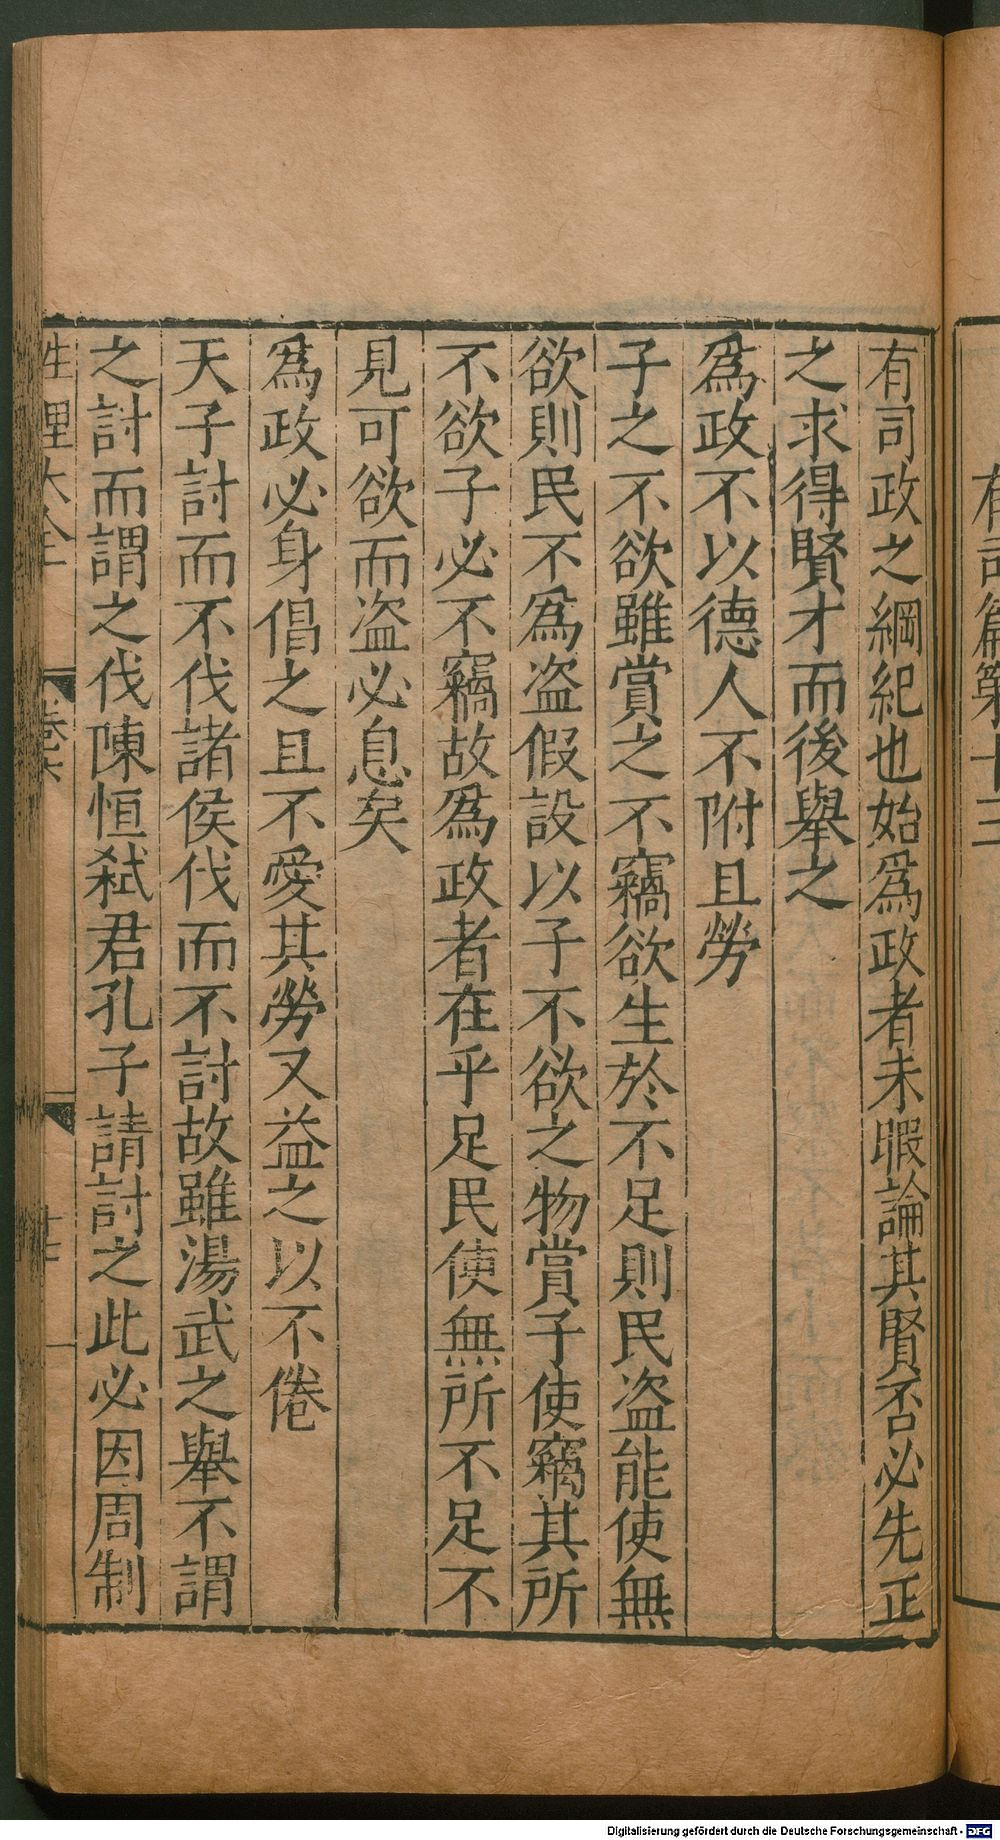 有司篇第十三
有司政之綱紀也始爲政者未暇論其賢否必先正
之求得賢才而後舉之
爲政不以德人不附且勞
子之不欲雖賞之不竊欲生於不足則民盗能使無
欲則民不爲盗假設以子不欲之物賞子使竊其所
不欲子必不竊故爲政者在乎足民使無所不足不
見可欲而盗必息矣
爲政必身倡之且不愛其勞又益之以不倦
天子討而不伐諸侯伐而不討故雖湯武之舉不謂
之討而謂之伐陳恒弑君孔子請討之此必因周制
性理大全 卷六 十七
Digitalisierung gefördert durch die Deutsche Forschungsgemeinschaft - DFG